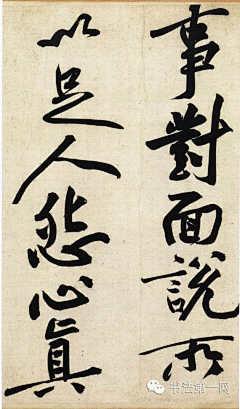 事對面說所
以足人怨心真
书法第一网